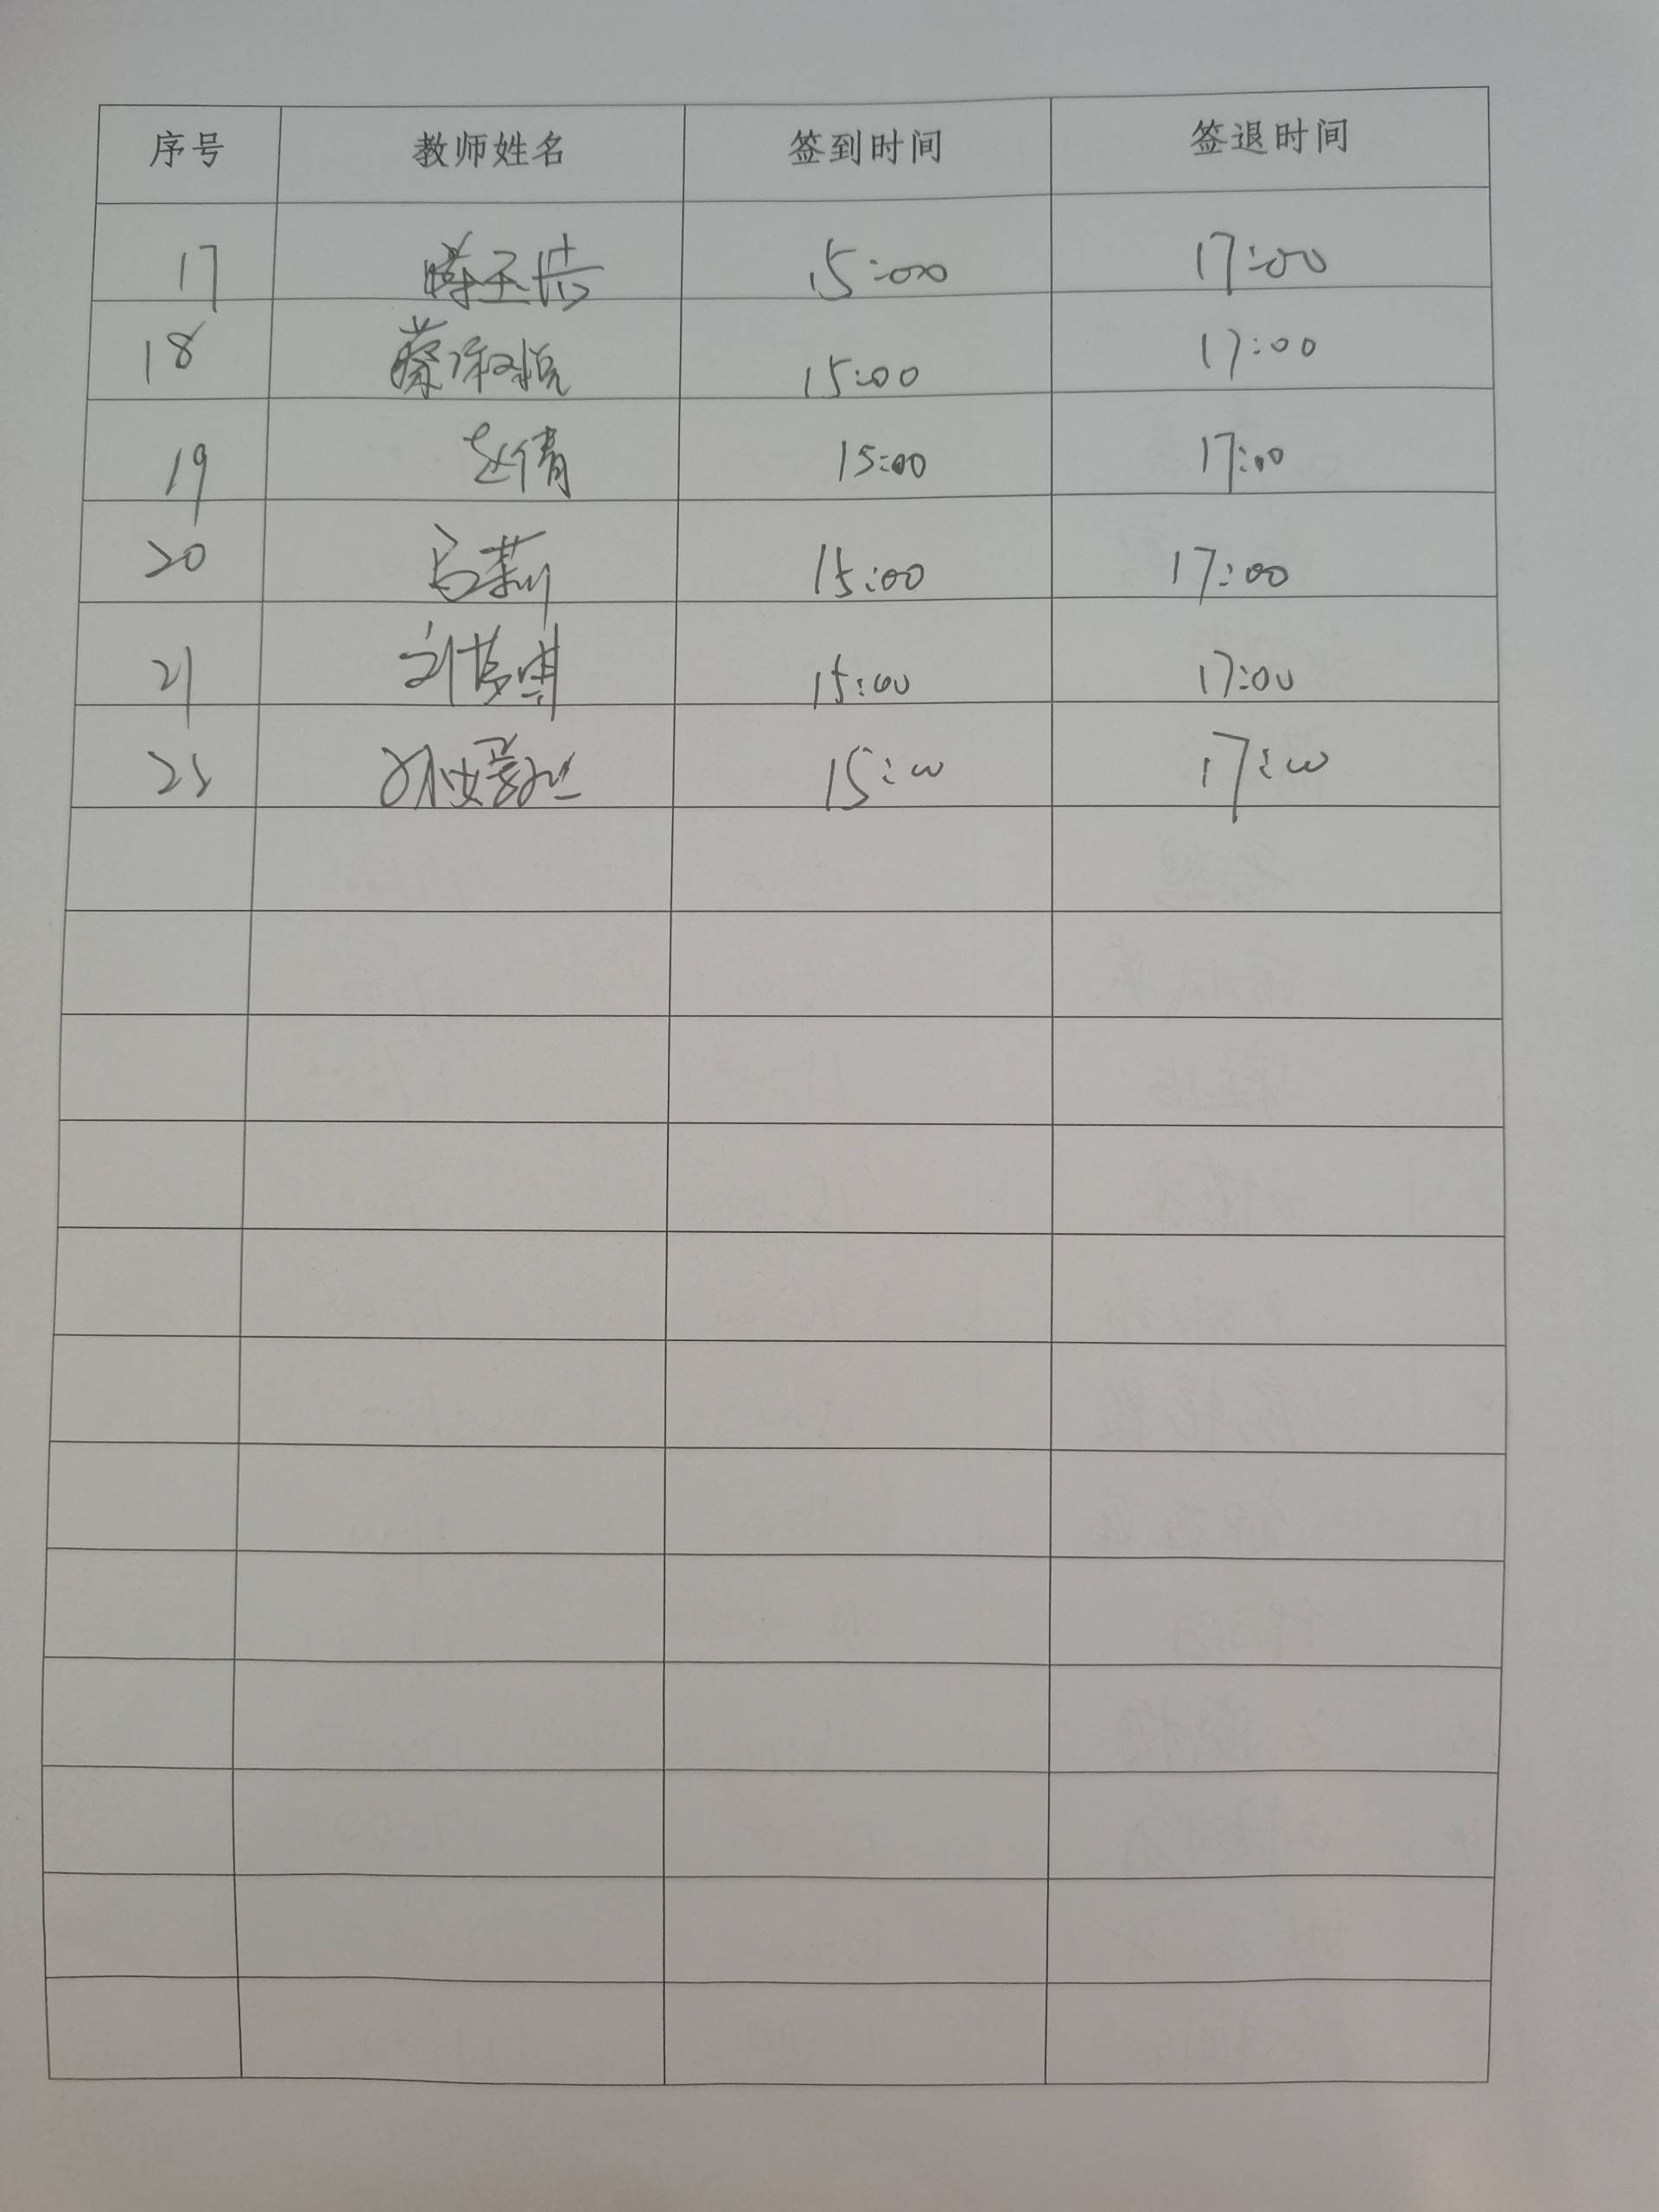 序号 教师姓名 签到时间 签退时间
17 15:00 17:00
18 蔡 15:00 17:00
19 赵倩 15:00 17:00
20 马莉 15:00 17:00
21 刘梦琪 15:00 17:00
15:00 17:00